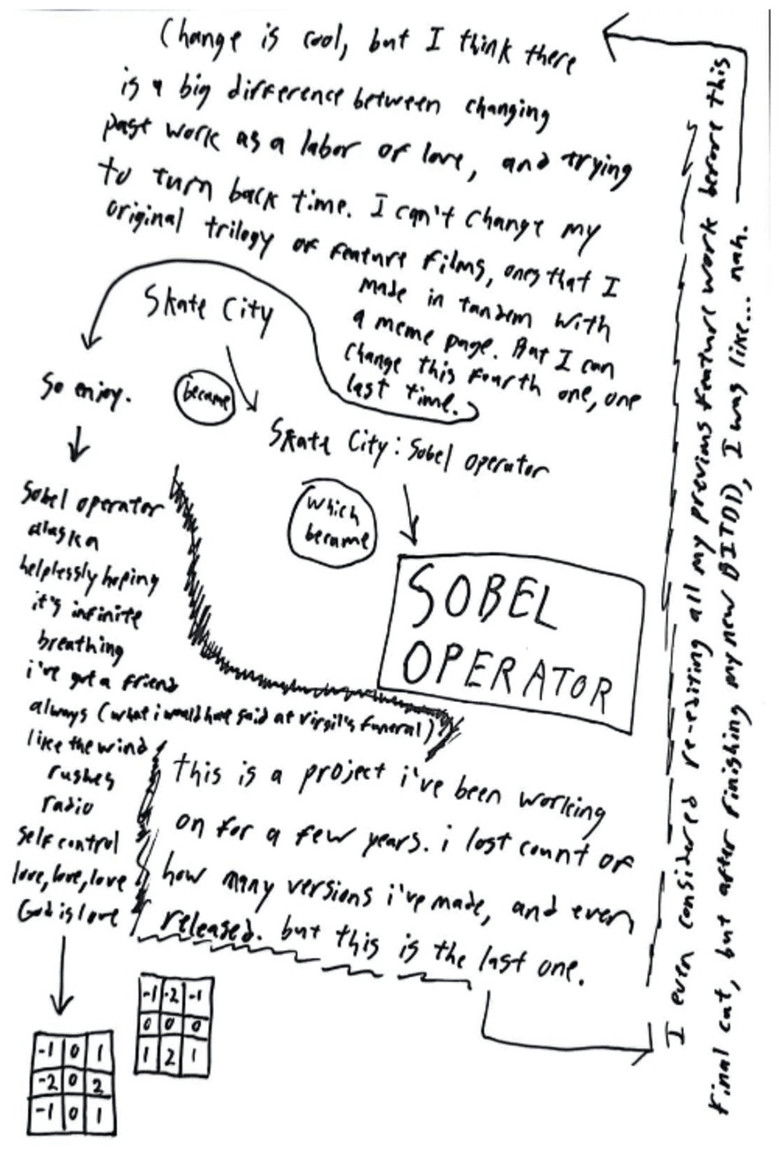 Change is cool, but I think there
is a big difference between changing
past work as a labor of love, and trying
to turn back time. I can't change my
original trilogy of feature films, ones that I
made in tandem with
a meme page. But I can
change this fourth one, one
last time.
Skate City
became
Skate City: Sobel operator
which
became
SOBEL
OPERATOR
So enjoy.
Sobel operator
alaska
helplessly hoping
it's infinite
breathing
i've got a friend
always (what i would have said at virgil's funeral)
like the wind
rushes
radio
self control
love, love, love
God is love
-1 0 1
-2 0 2
-1 0 1
-1 -2 -1
0 0 0
1 2 1
this is a project i've been working
on for a few years. i lost count of
how many versions i've made, and even
released. but this is the last one.
I even considered re-editing all my previous feature work before this
final cut, but after finishing my new BITD(I), I was like... nah.